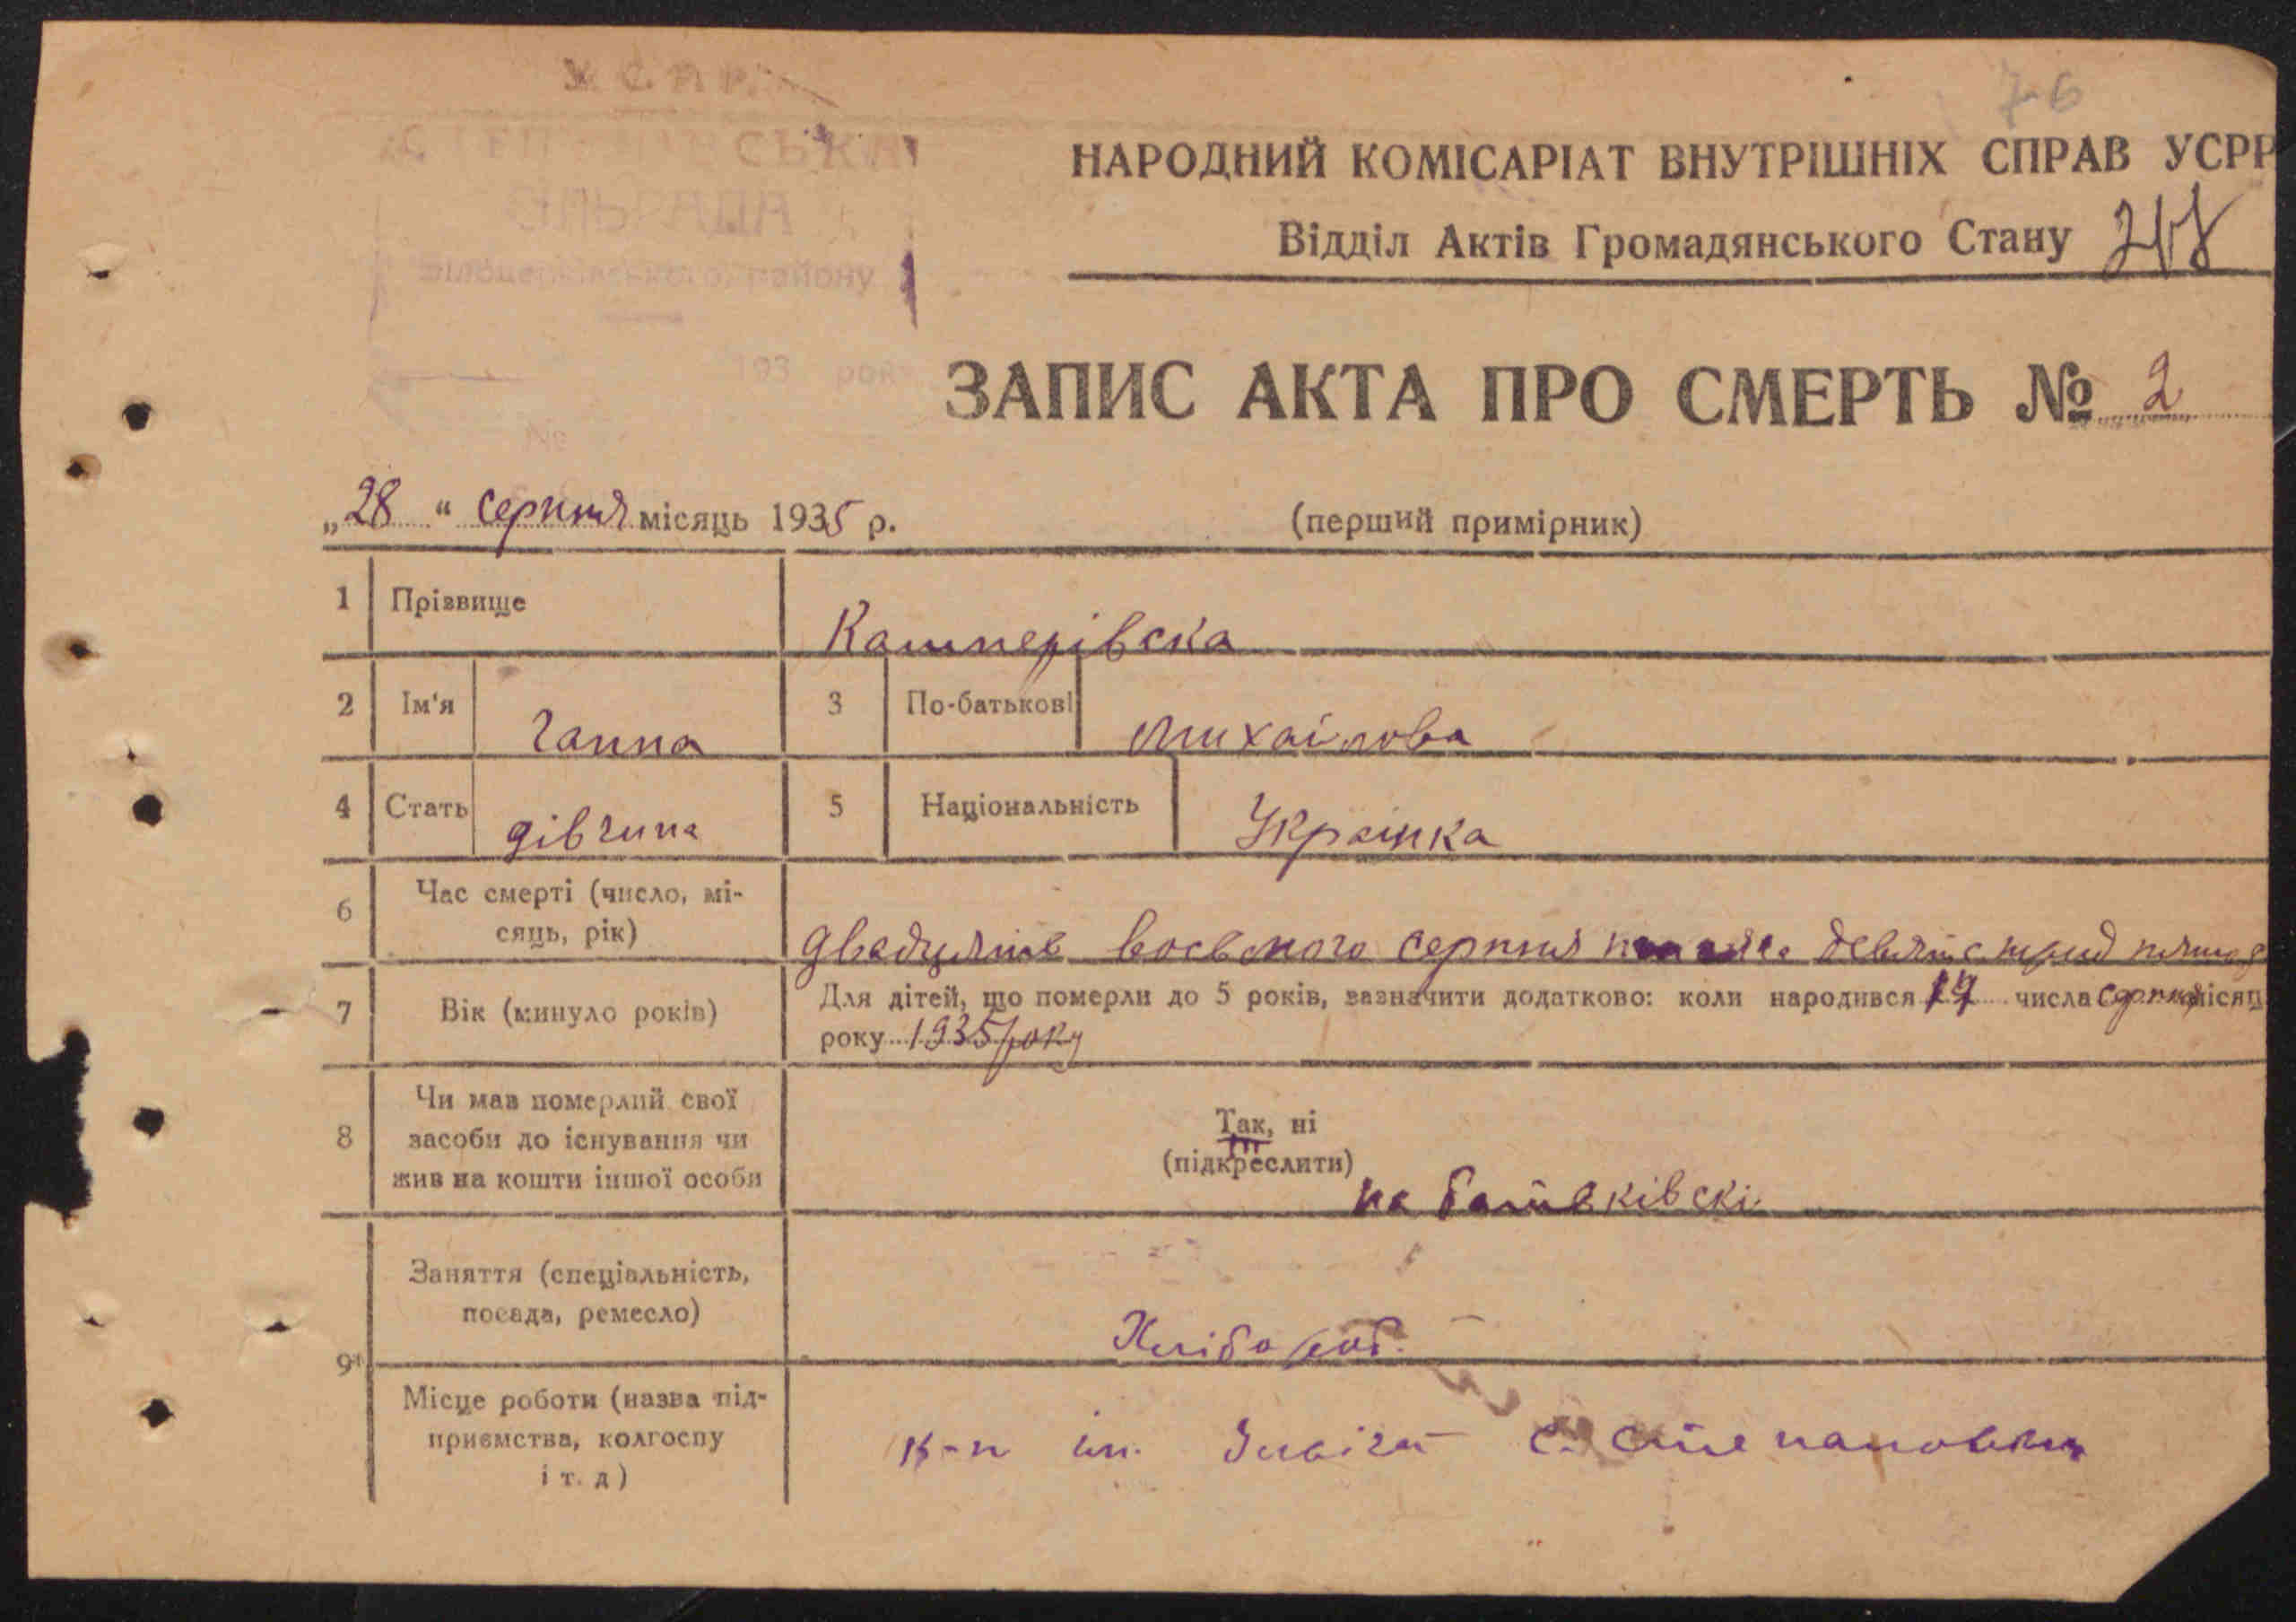 У.С.Р.Р.
76
СЬКА
СІЛЬРАДА
Білоцерківського району
193 рок
№
НАРОДНИЙ КОМІСАРІАТ ВНУТРІШНІХ СПРАВ УСРР
Відділ Актів Громадянського Стану
ЗАПИС АКТА ПРО СМЕРТЬ № 2
„28“ серпня місяць 1935 р.
(перший примірник)
1 Прізвище Кашперівска
2 Ім'я Ганна 3 По-батькові Михаілова
4 Стать дівчина 5 Національність Украінка
6 Час смерті (число, мі-
сяць, рік) двадцять восьмого серпня
7 Вік (минуло років) Для дітей, що померли до 5 років, зазначити додатково: коли народився 17 числа серпня місяц
року 1935 року
8 Чи мав померлий свої
засоби до існування чи
жив на кошти іншої особи
Так, ні
(підкреслити)
на батьківскі
9 Заняття (спеціальність,
посада, ремесло) Хлібороб.
Місце роботи (назва під-
приємства, колгоспу
і т. д) к-п ім. с. Степановки